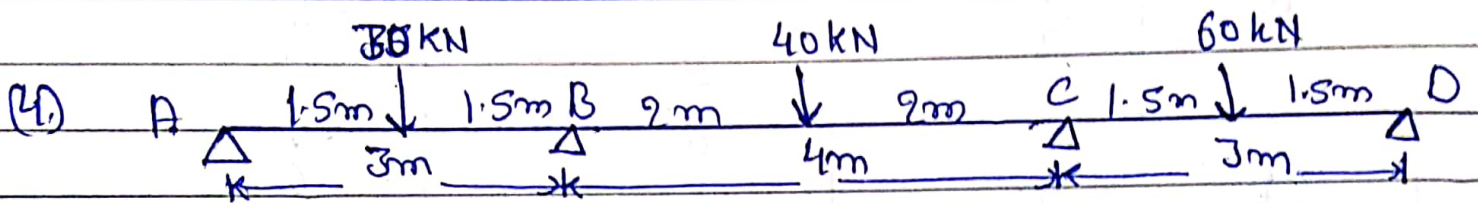 KN 40kN 60kN
(4.) A 1.5m 1.5m B 2m 2m C 1.5m 1.5m D
3m 4m 3m